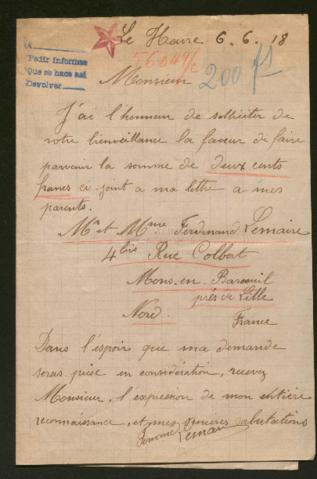 Le Havre 6. 6. 18
A
Pedir informes
Que se hace así
Devolver
200 f
Monsieur
J'ai l'honneur de solliciter de
votre bienveillance la faveur de faire
parvenir la somme de deux cents
francs ci-joint a ma lettre a mes
parents.
Mr et Mme Ferdinand Lemaire
4 bis Rue Colbert
Mons-en Baroeuil
près de Lille
Nord.
France
Dans l'espoir que ma demande
sera prise en considération, recevez
Monsieur, l'expression de mon entière
reconnaissance, et mes sincères salutations
Lemaire